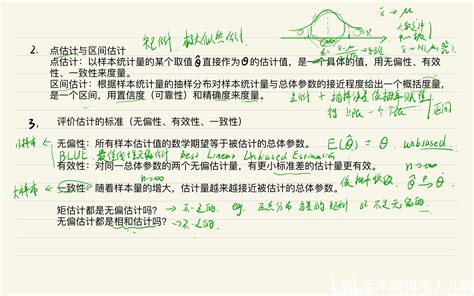 矩估计、极大似然估计
x̄ → μ
2. 点估计与区间估计
点估计：以样本统计量的某个取值θ̂直接作为θ的估计值，是一个具体的值，用无偏性、有效
性、一致性来度量。
区间估计：根据样本统计量的抽样分布对样本统计量与总体参数的接近程度给出一个概括度量，
是一个区间，用置信度（可靠性）和精确度来度量。
区间
3. 评价估计的标准（无偏性、有效性、一致性）
小样本
无偏性：所有样本估计值的数学期望等于被估计的总体参数。 E(θ̂) = θ. unbiased
BLUE 最佳线性无偏估计 Best Linear Unbiased Estimation
有效性：对同一总体参数的两个无偏估计量，有更小标准差的估计量更有效。
n→∞
大样本
一致性：随着样本量的增大，估计量越来越接近被估计的总体参数。 依概率收敛 θ̂ →P θ
n→∞
矩估计都是无偏估计吗？ → 不一定的. eg. 正态分布 方差的矩估计 就不是无偏的.
无偏估计都是相和估计吗？ → 不一定的.